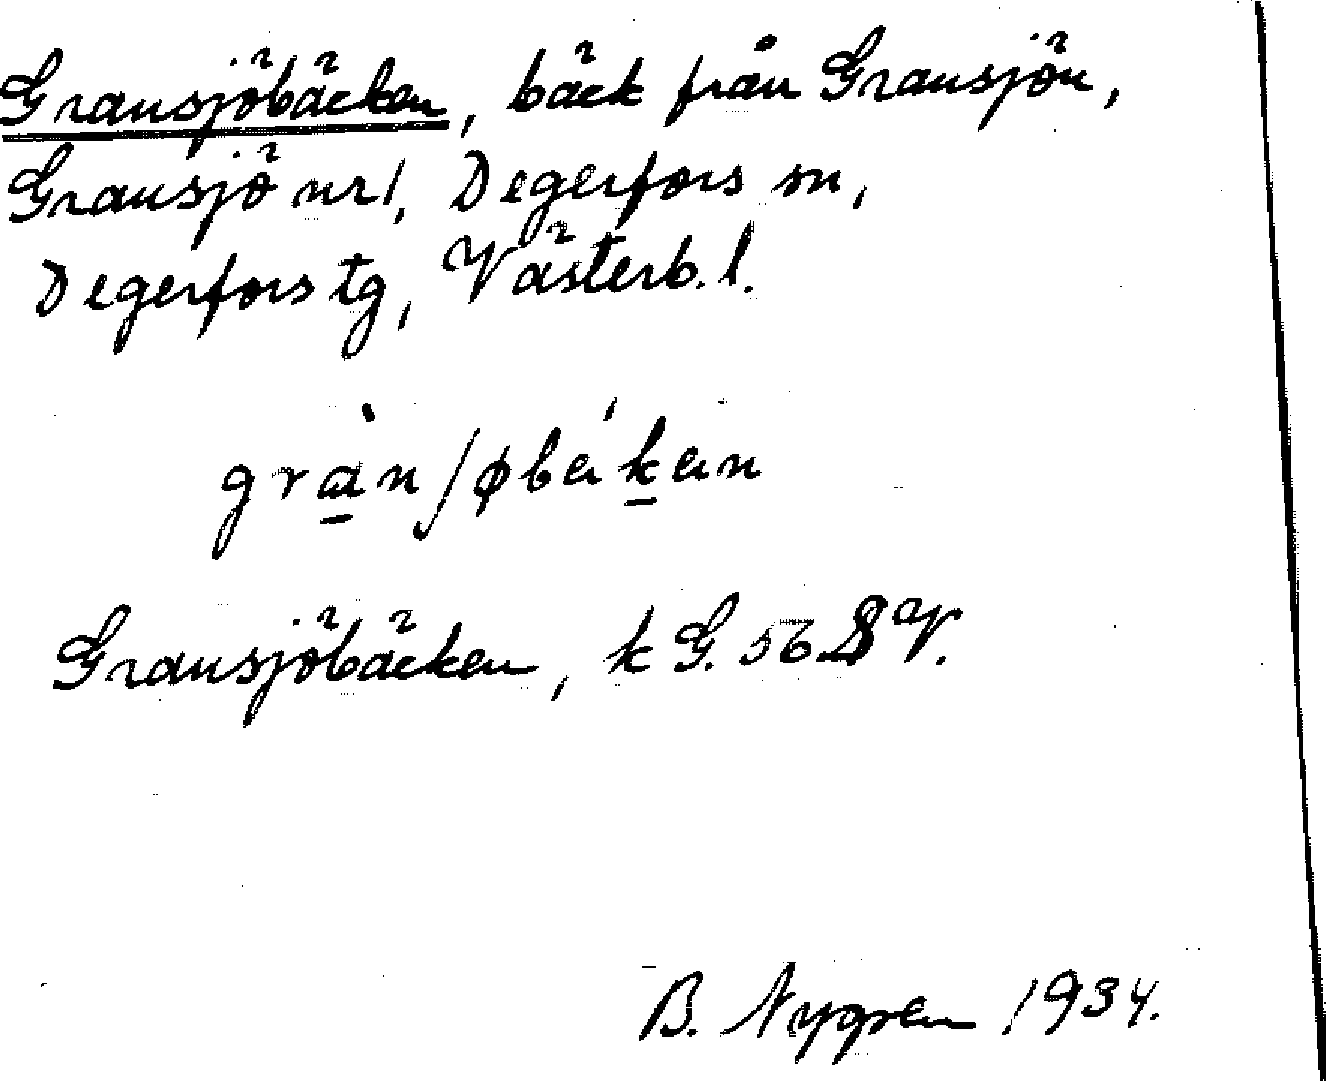 Gransjöbäcken, bäck från Gransjön,
Gransjö nr 1, Degerfors sn,
Degerfors tg, Västerb. l.
Gransjöbäcken, k G. 56 SV.
B. Nygren 1934.